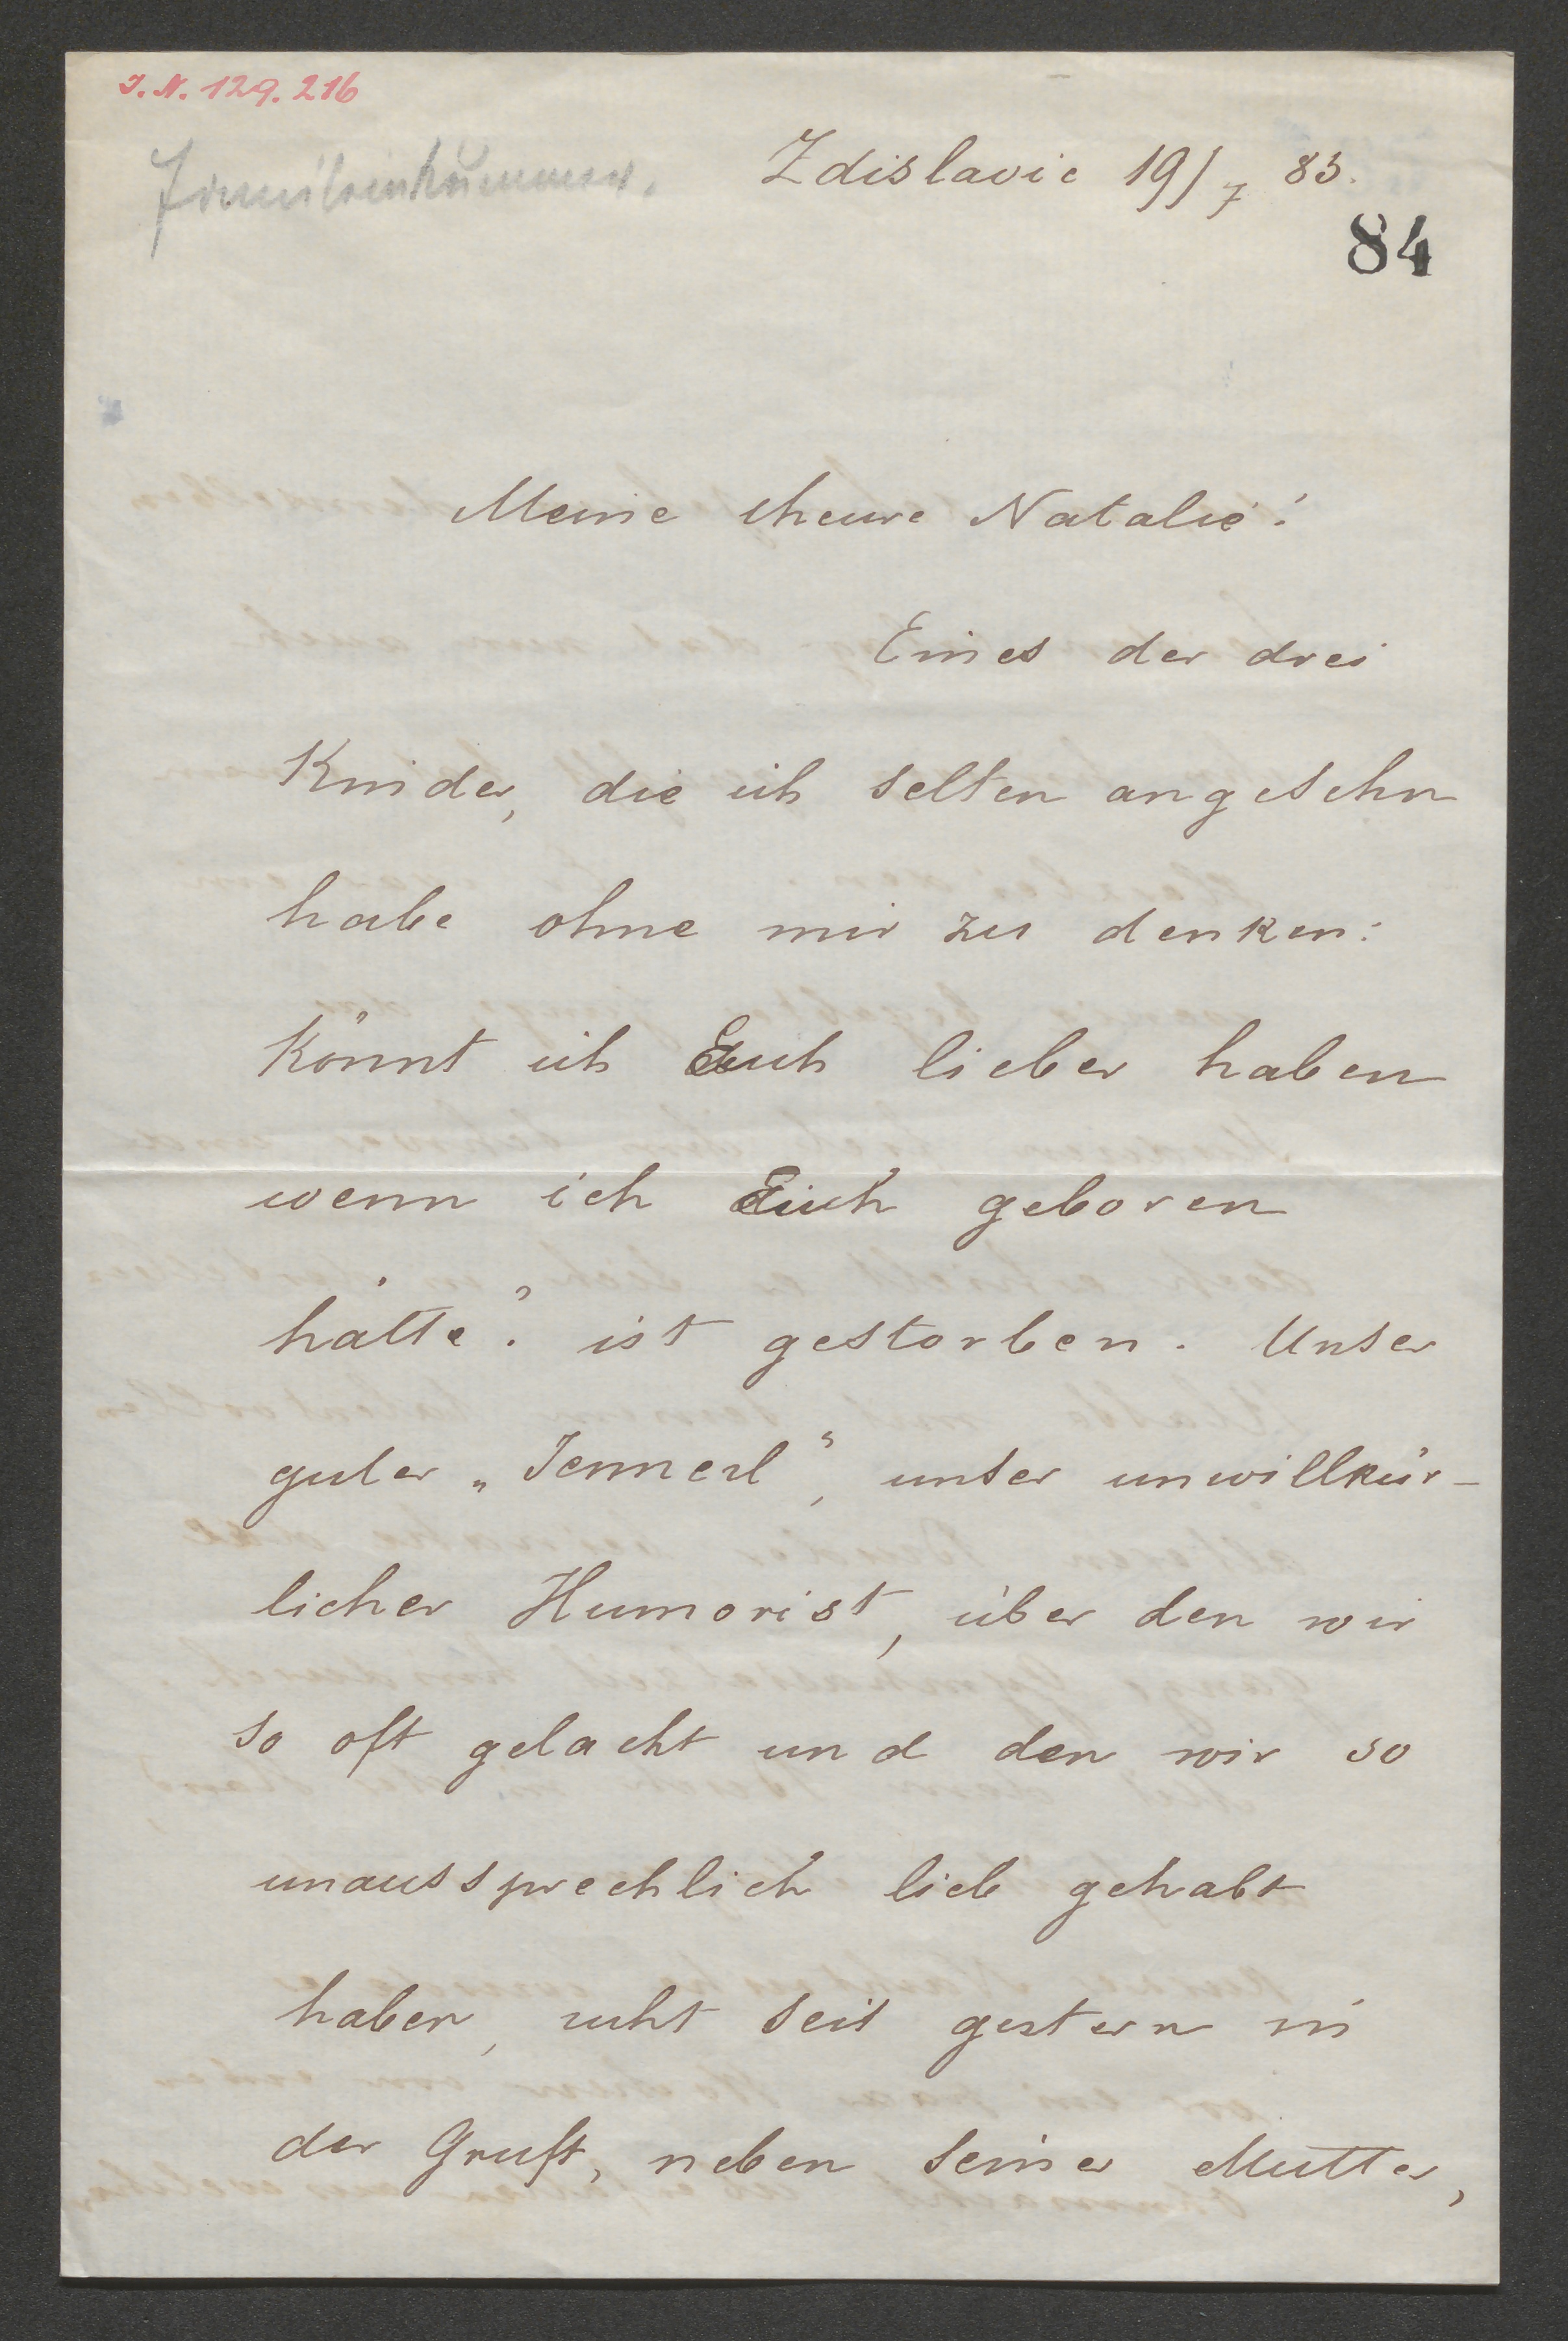 J. N. 129.216
Familienkummer.
Zdislavic 19/7 83.
84
Meine theure Natalie!
Eines der drei
Kinder, die ich selten angesehn
habe ohne mir zu denken:
Könnt ich Euch lieber haben
wenn ich Euch geboren
hätte? ist gestorben. Unser
guter „Jennerl“, unser unwillkür-
licher Humorist, über den wir
so oft gelacht und den wir so
unaussprechlich lieb gehabt
haben, ruht seit gestern in
der Gruft, neben seiner Mutter,